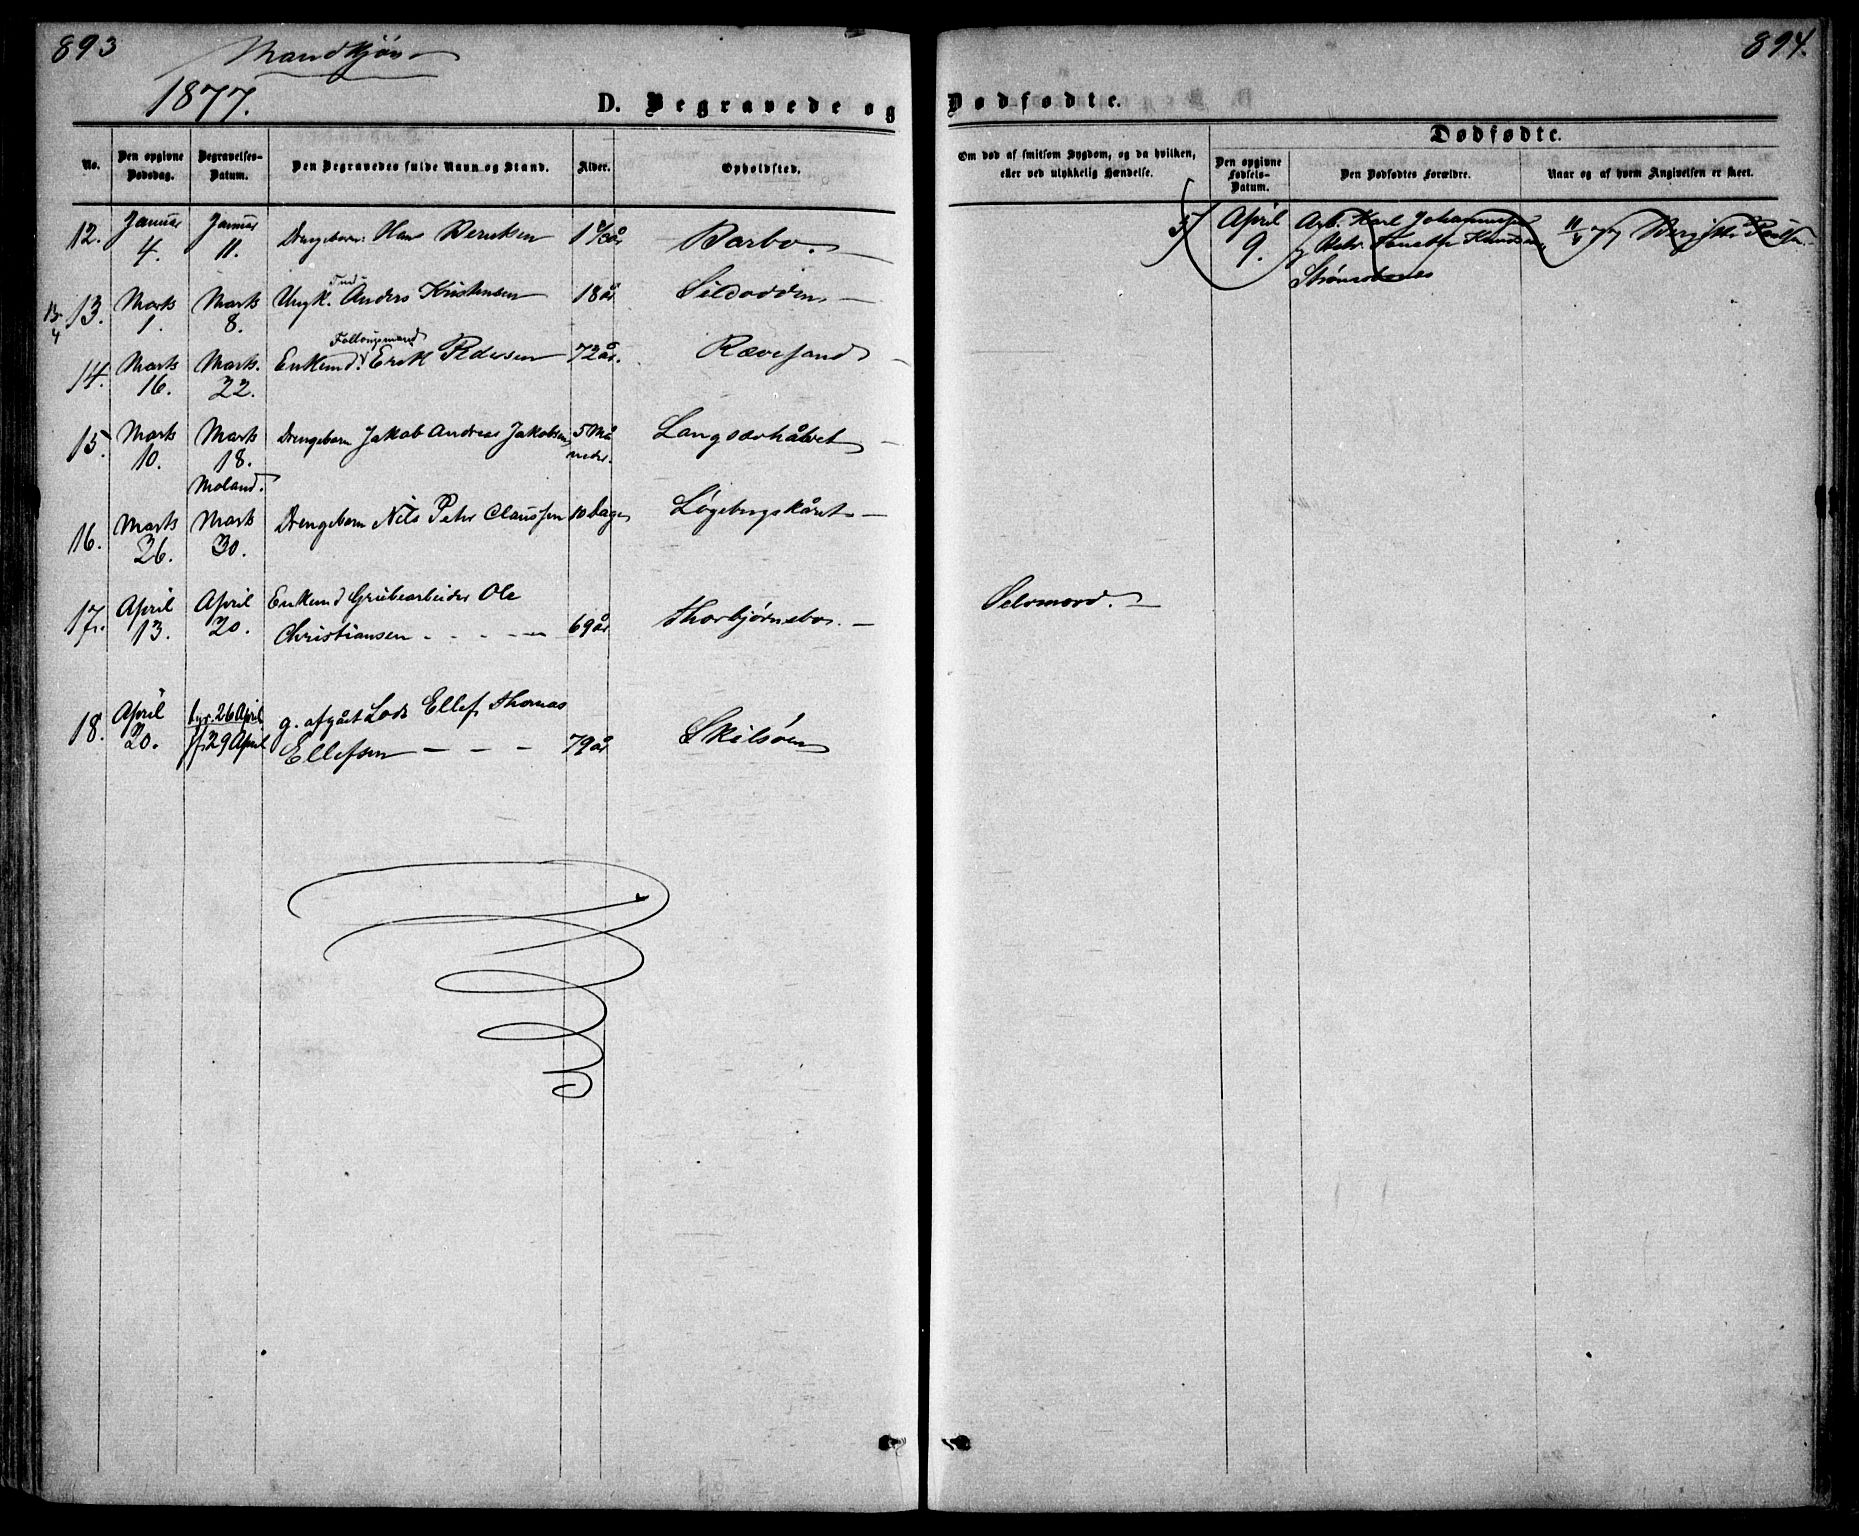 893
Mandkjøn
1877.
D. Begravede og
No.
Den opgivne Dødsdag.
Begravelses-Datum.
Den Begravedes fulde Navn og Stand.
Alder.
Opholdsted.
12. Januar 4. Januar 11. Drengebarn: Hans Berntsen 1 år Barbo.
13. Marts 1. Marts 8. Ungk. Anders Kristensen 18 år Sildodden
14. Marts 16. Marts. 22. Enkemd. Erik Pedersen 72 år. Rævesand
15. Marts 10. Marts 18. Moland. Drengebarn Jakob Andreas Jakobsen 5 Måneder.
16. Marts 26. Marts 30. Drengebarn Nils Peter Claussen 10 Dage Løgebergskåret
17. April 13. April 20. Enkemd Grubearbeider Ole
Christiansen 69 år Thorbjørnsbo.
18. April 20. 26 April 29 April g. afgået Lods Ellef Thomas
Ellefsen 79 år Skilsøen
894.
Dødfødte.
Om død af smitsom Sygdom, og da hvilken, eller ved ulykkelig Hændelse.
Dødfødte.
Den opgivne Fødsels-Datum.
Den Dødfødtes Forældre.
Naar og af hvem Angivelsen er skeet.
5 April 9. Arb. Karl Johannessen
Knudsen
Strømsbunes
Selvmord.